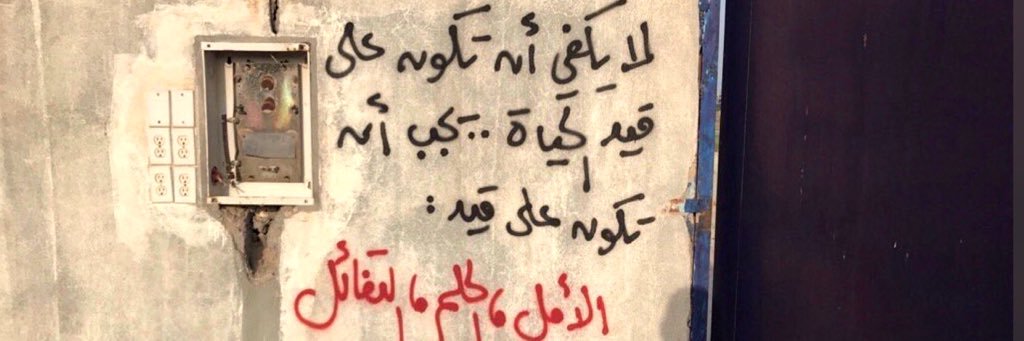 لا يكفي أن تكون على
قيد الحياة .. يجب أن
تكون على قيد :
الأمل والحلم والتفائل